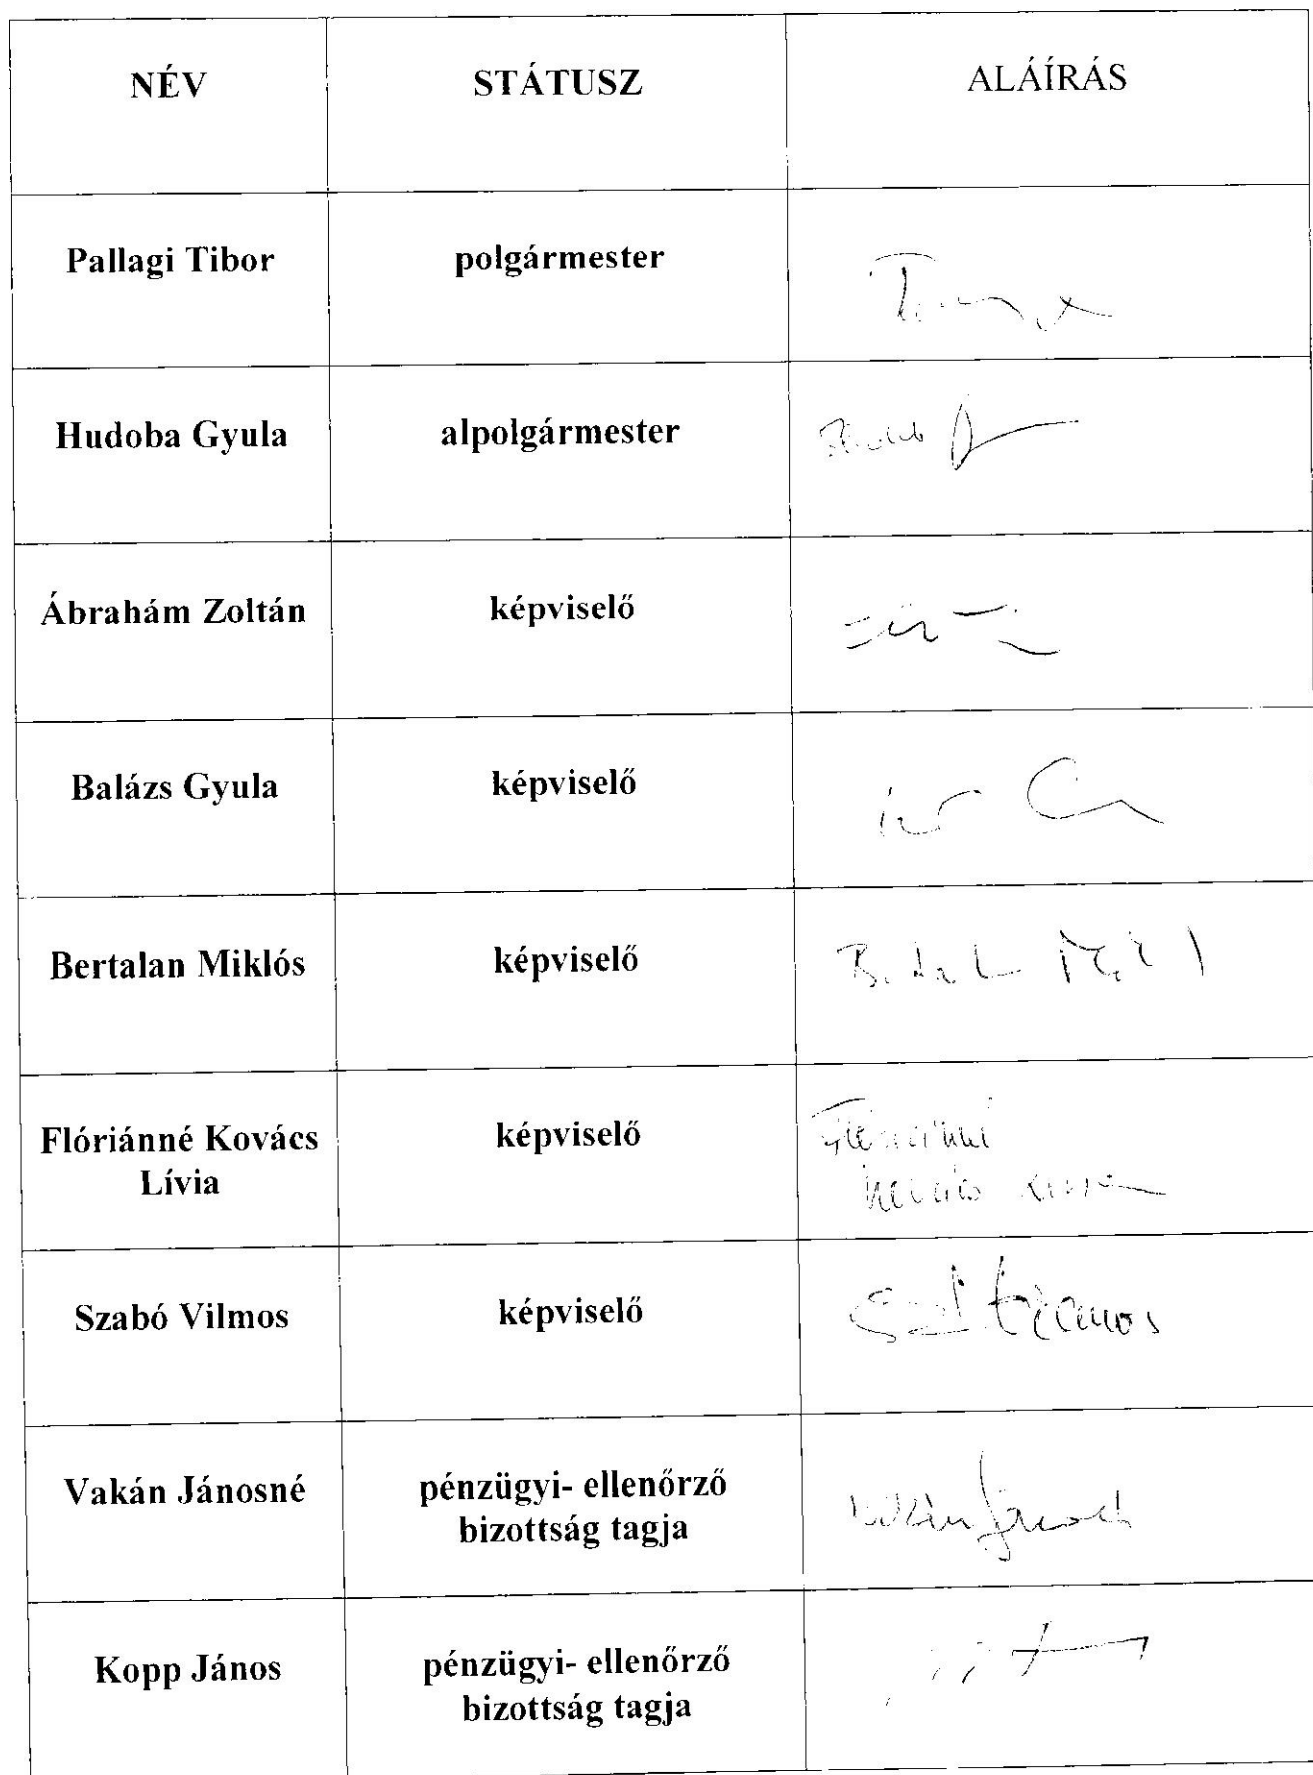 NÉV STÁTUSZ ALÁÍRÁS
Pallagi Tibor polgármester
Hudoba Gyula alpolgármester
Ábrahám Zoltán képviselő
Balázs Gyula képviselő
Bertalan Miklós képviselő
Flóriánné Kovács képviselő
Lívia
Szabó Vilmos képviselő
Vakán Jánosné pénzügyi- ellenőrző
bizottság tagja
Kopp János pénzügyi- ellenőrző
bizottság tagja